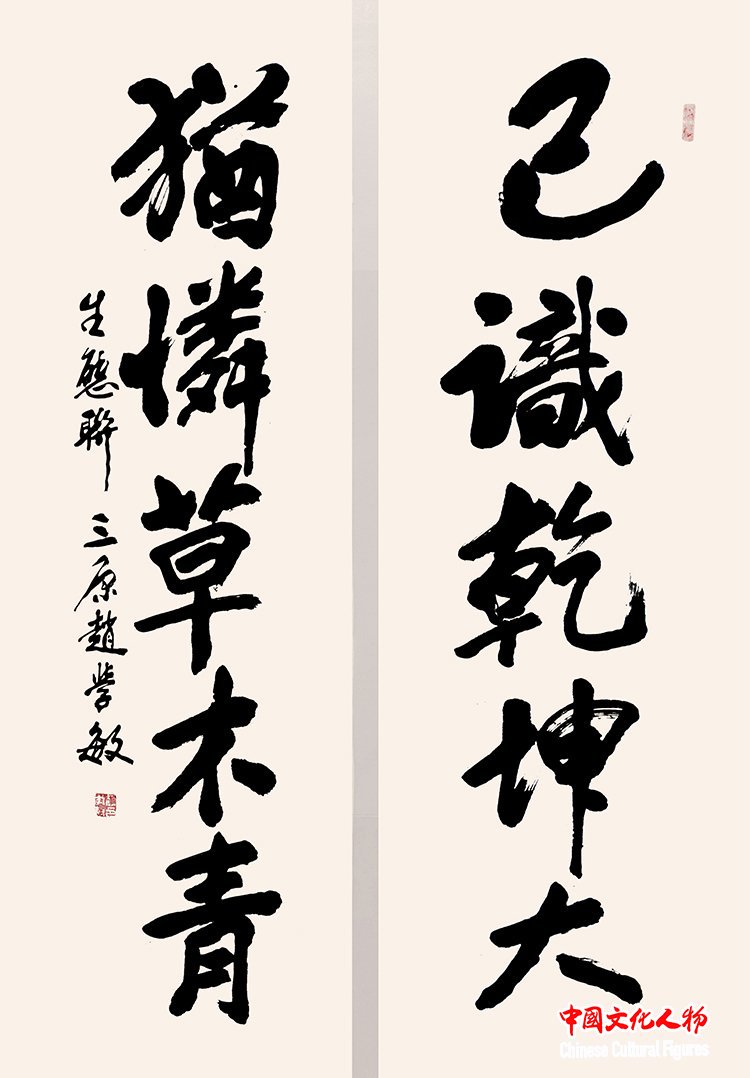 已識乾坤大
猶憐草木青
生態聯 三原趙學敏
中國文化人物
Chinese Cultural Figures